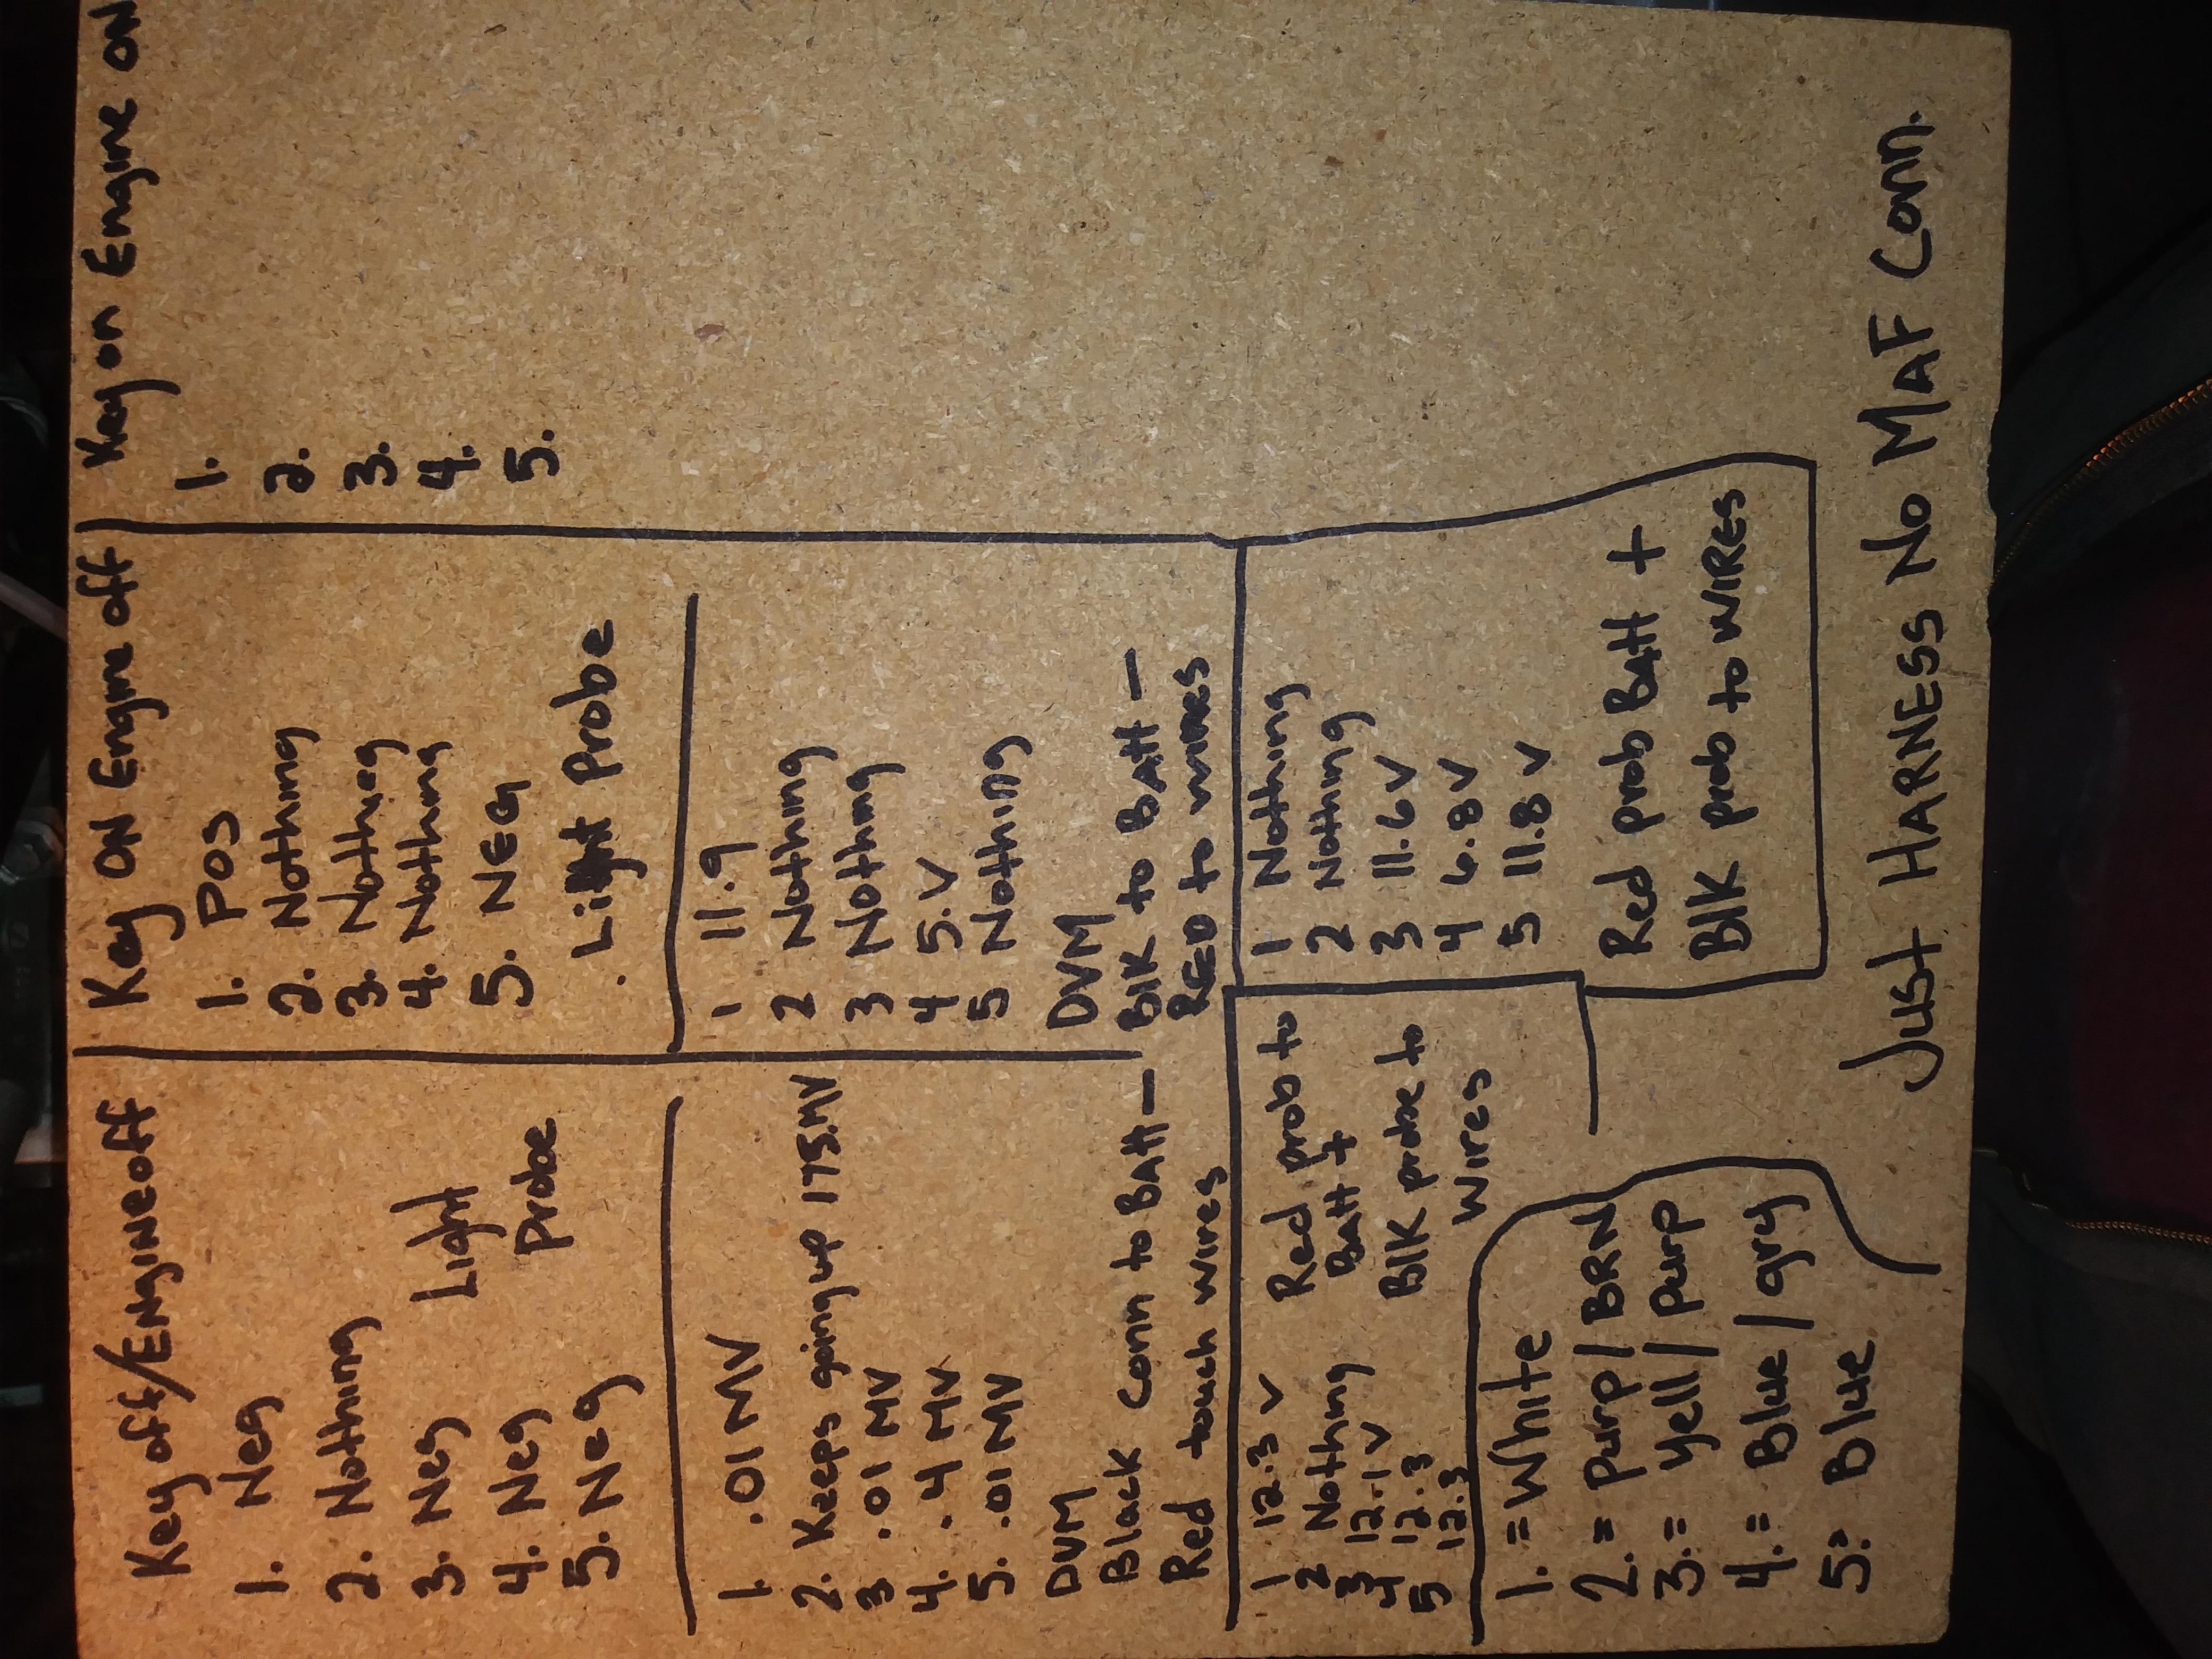 Key off/Engine off
1. Neg
2. Nothing
3. Neg
4. Neg
5. Neg
Light
Probe
1. .01 MV
2. Keeps going up 175.MV
3 .01 MV
4. .4 MV
5. .01 MV
DVM
Black Conn to Batt –
Red touch wires
1 12.3 V
2 Nothing
3 12.1 V
4 12.3
5 12.3
Red prob to
Batt +
BlK probe to
wires
1. = White
2. = Purp / BRN
3. = yell / purp
4. = Blue / gry
5. = Blue
Key ON Engine off
1. POS
2. Nothing
3. Nothing
4. Nothing
5. NEg
. Light Probe
1 11.9
2 Nothing
3 Nothing
4 5.V
5 Nothing
DVM
BlK to Batt –
RED to wires
1 Nothing
2 Nothing
3 11.6 V
4 6.8 V
5 11.8 V
Red prob Batt +
BlK prob to WIRES
Key on Engine ON
1.
2.
3.
4.
5.
Just HARNESS No MAF Conn.